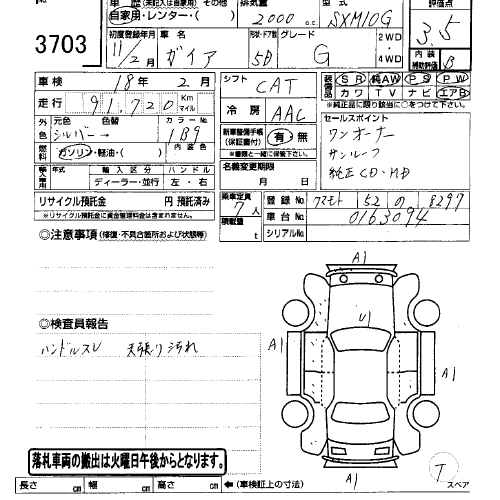 3703
車歴 (未記入は自家用)
自家用・レンター・( )
排気量
2000 cc
型式
SXM10G
評価点
3.5
初度登録年月
11/2月
車名
ガイア
形状・ドア数
5D
グレード
G
2WD・4WD
内装補助評価 B
車検 18年 2月
シフト CAT
装備品 SR 純AW PS PW
カワ TV ナビ エアB
※純正品に限り該当に○をつけて下さい。
走行 91,720 Km マイル
冷房 AAC
外色 元色 シルバー→ 色替
カラーNo 1B9
燃料 ガソリン・軽油・( )
内装色
新車整備手帳(保証書付) 有・無
※書類と一緒に保管下さい。
セールスポイント
ワンオーナー
サンルーフ
純正CD・MD
輸入車用 年式 年 輸入区分 ディーラー・並行 ハンドル 左・右
名義変更期限 月 日
リサイクル預託金 円 預託済み
※リサイクル預託金に資金管理料金は含まれません。
乗車定員 7人
積載量 t
登録No 52 の 8297
車台No 0163094
シリアルNo
◎注意事項 (修復・不具合箇所および状態等)
◎検査員報告
ハンドルスレ 天張り汚れ
A1
U1
A1
A1
A1
落札車両の搬出は火曜日午後からとなります。
長さ cm 幅 cm 高さ cm ←(車検証上の寸法)
T
スペア